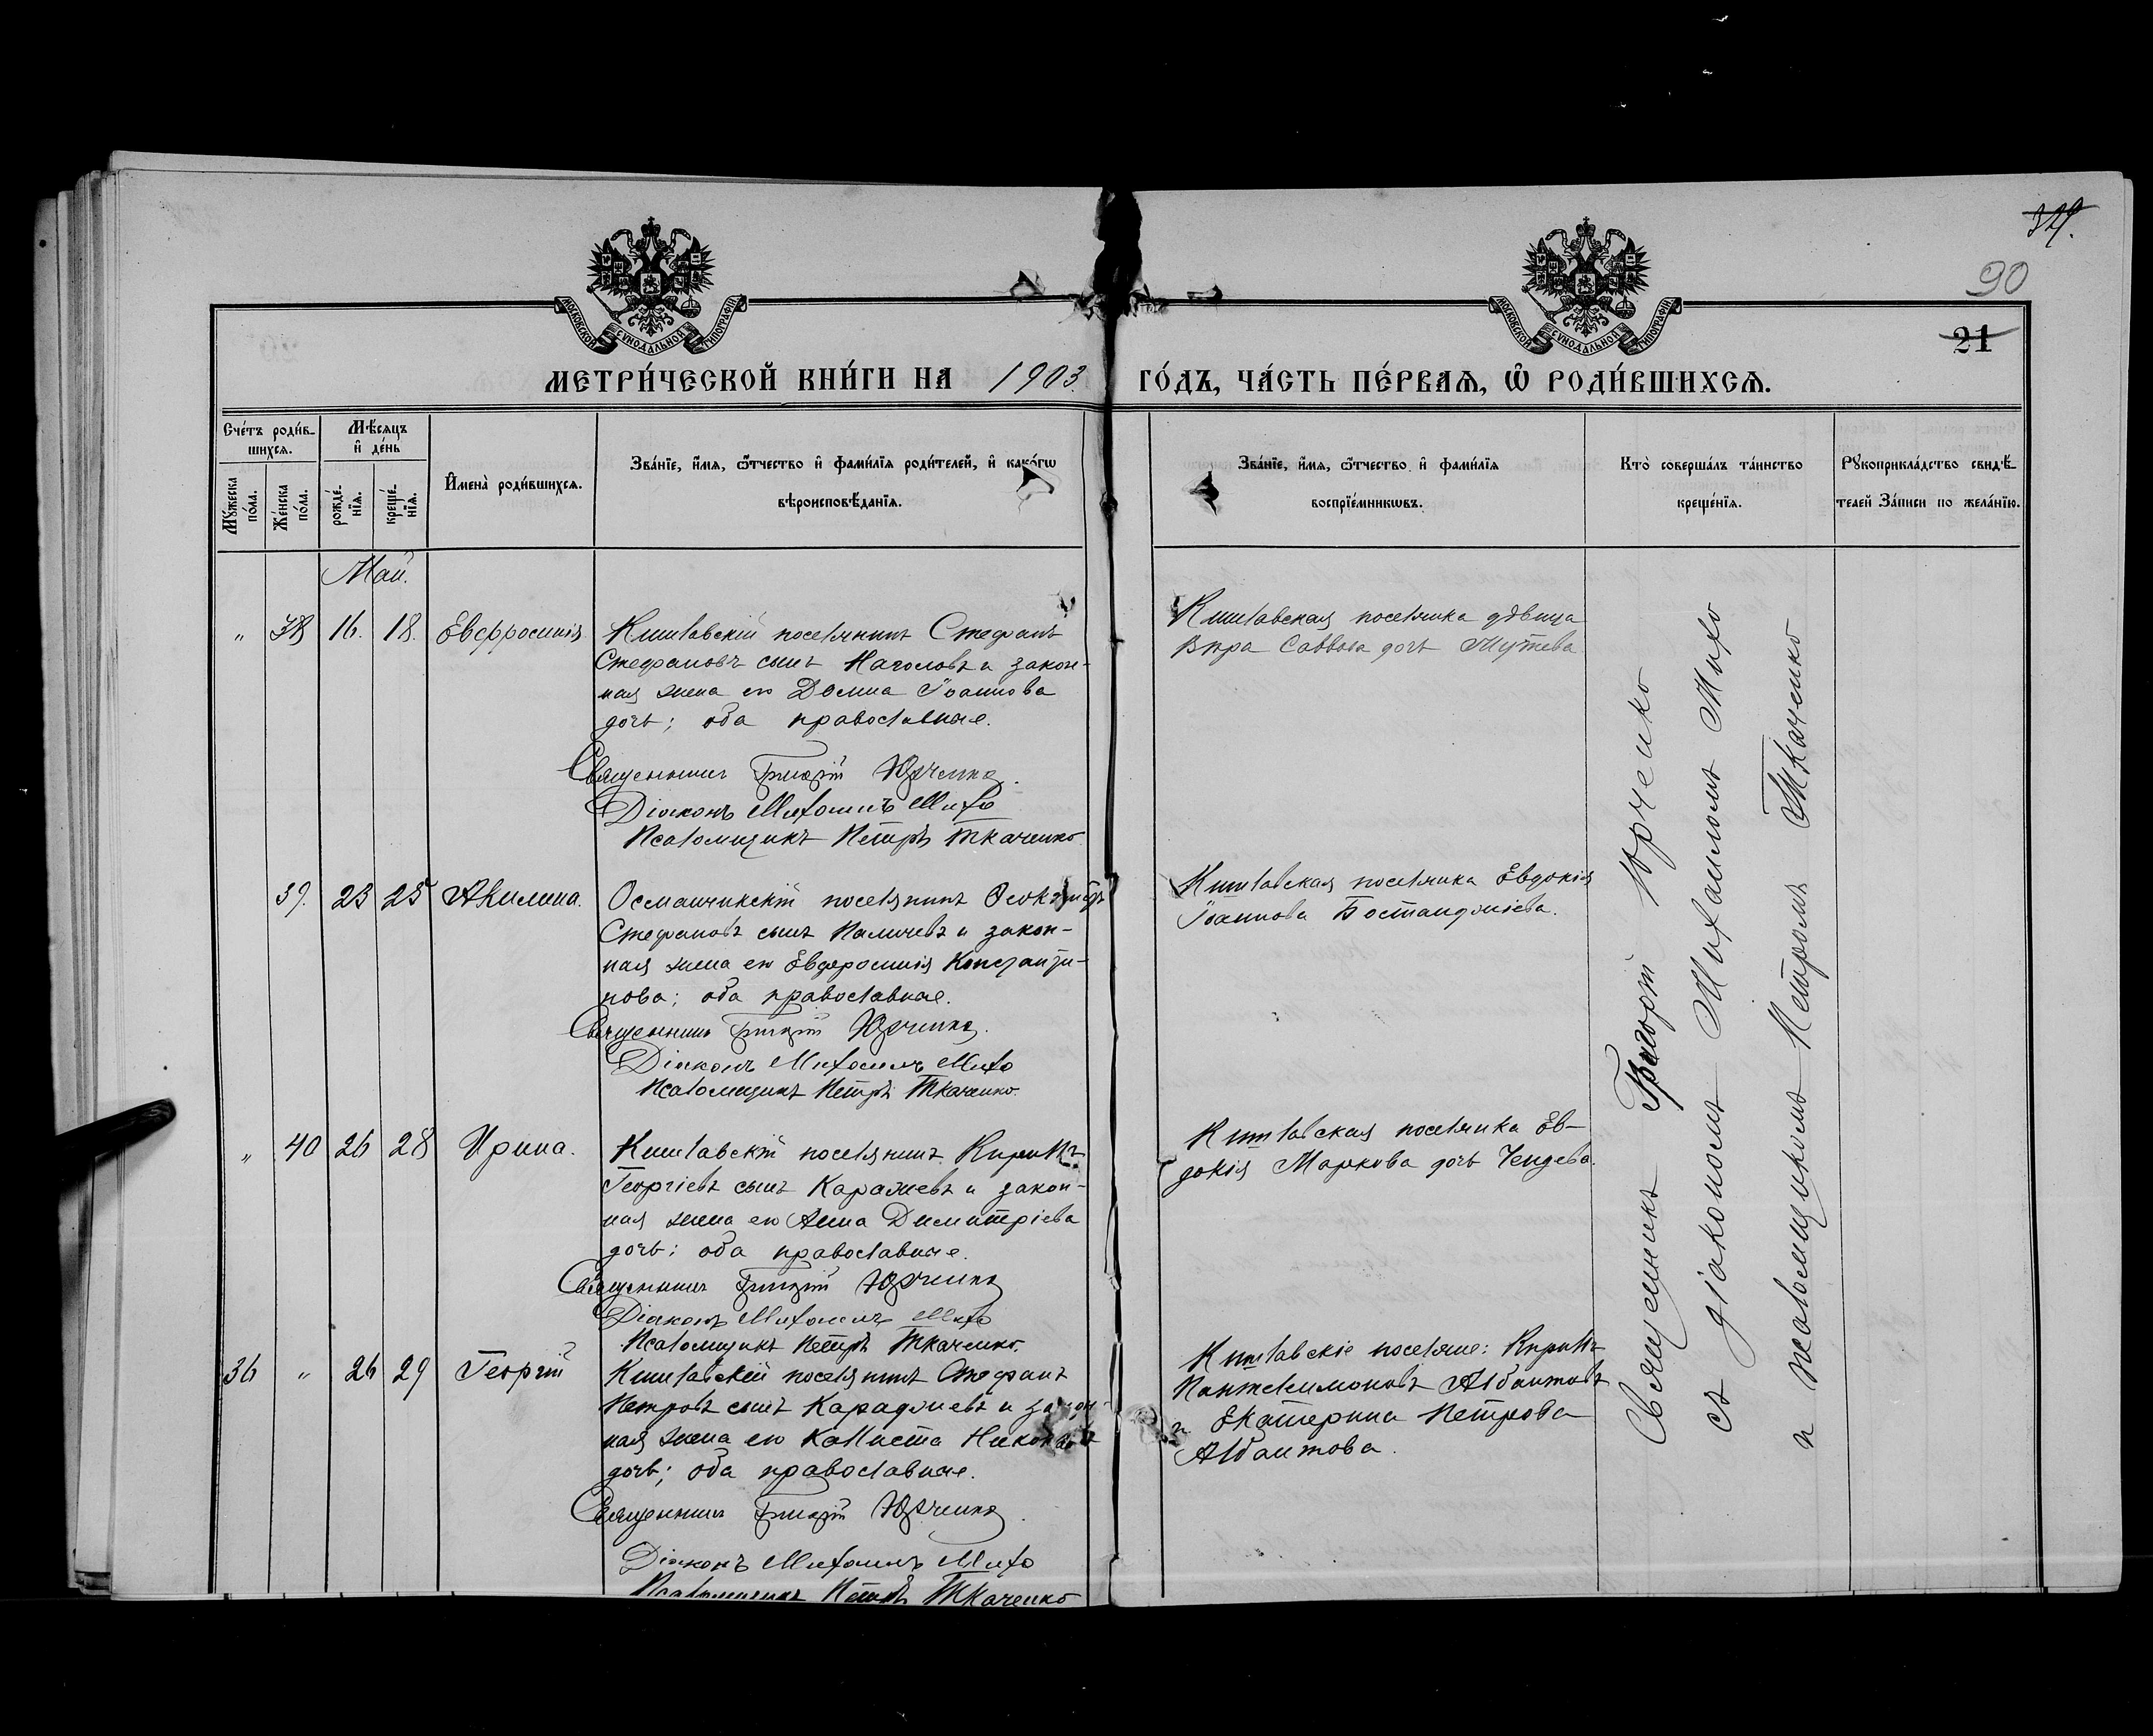 329.
90
21
МОСКОВСКОЙ СѴНОДАЛЬНОЙ ТИПОГРАФІИ
МОСКОВСКОЙ СѴНОДАЛЬНОЙ ТИПОГРАФІИ
МЕТРИ́ЧЕСКОЙ КНИ́ГИ НА 1903. ГО́ДЪ, ЧА́СТЬ ПЕ́РВАЯ, Ѽ РОДИ́ВШИХСЯ.
Сче́тъ роди́в-
шихся.
Мꙋ́жеска по́ла.
Же́нска по́ла.
Мѣ́сяцъ
и҆ де́нь
рожде́-
нїѧ.
креще́-
нїѧ.
И҆мена̀ роди́вшихся.
Зва́нїе, и҆́мѧ, ѻ҆́тчество и҆ фами́лїѧ роди́телей, и҆ како́гѡ
вѣроисповѣ́данїѧ.
Зва́нїе, и҆́мѧ, ѻ҆́тчество и҆ фами́лїѧ
воспрїе́мникѡвъ.
Кто̀ соверша́лъ та́инство
креще́нїѧ.
Рꙋкоприкла́дство свидѣ́-
телей За́писи по жела́нїю.
Май.
" 38 16. 18. Евфросинія
Кишлавскій поселянинъ Стефанъ
Стефановъ сынъ Наголовъ и закон-
ная жена его Домна Іоаннова
дочь; оба православные.
Священникъ Григорій Юрченко.
Діаконъ Михаилъ Михо
Псаломщикъ Петръ Ткаченко
Кишлавская поселянка дѣвица
Вѣра Саввова дочь Мутева
39. 23 25 Акилина.
Османчикскій поселянинъ
Стефановъ сынъ Паличевъ и закон-
ная жена его Евфросинія Константи-
нова; оба православные.
Священникъ Григорій Юрченко.
Діаконъ Михаилъ Михо
Псаломщикъ Петръ Ткаченко.
Кишлавская поселянка Евдокія
Іоаннова Бостанджіева.
" 40 26 28 Ирина.
Кишлавскій поселянинъ Кириллъ
Георгіевъ сынъ Каражевъ и закон-
ная жена его Анна Димитріева
дочь; оба православные.
Священникъ Григорій Юрченко
Діаконъ Михаилъ Михо
Псаломщикъ Петръ Ткаченко.
Кишлавская поселянка Ев-
докія Маркова дочь Чендева.
36 " 26 29 Георгій
Кишлавскій поселянинъ Стефанъ
Петровъ сынъ Караджевъ и закон-
ная жена его Каллиста
дочь; оба православные.
Священникъ Григорій Юрченко.
Діаконъ Михаилъ Михо
Псаломщикъ Петръ Ткаченко
Кишлавскіе поселяне: Кириллъ
Пантелимоновъ Албантовъ
и Екатерина Петрова
Албантова.
Священникъ Григорій Юрченко
съ діакономъ Михаиломъ Михо
и псаломщикомъ Петромъ Ткаченко